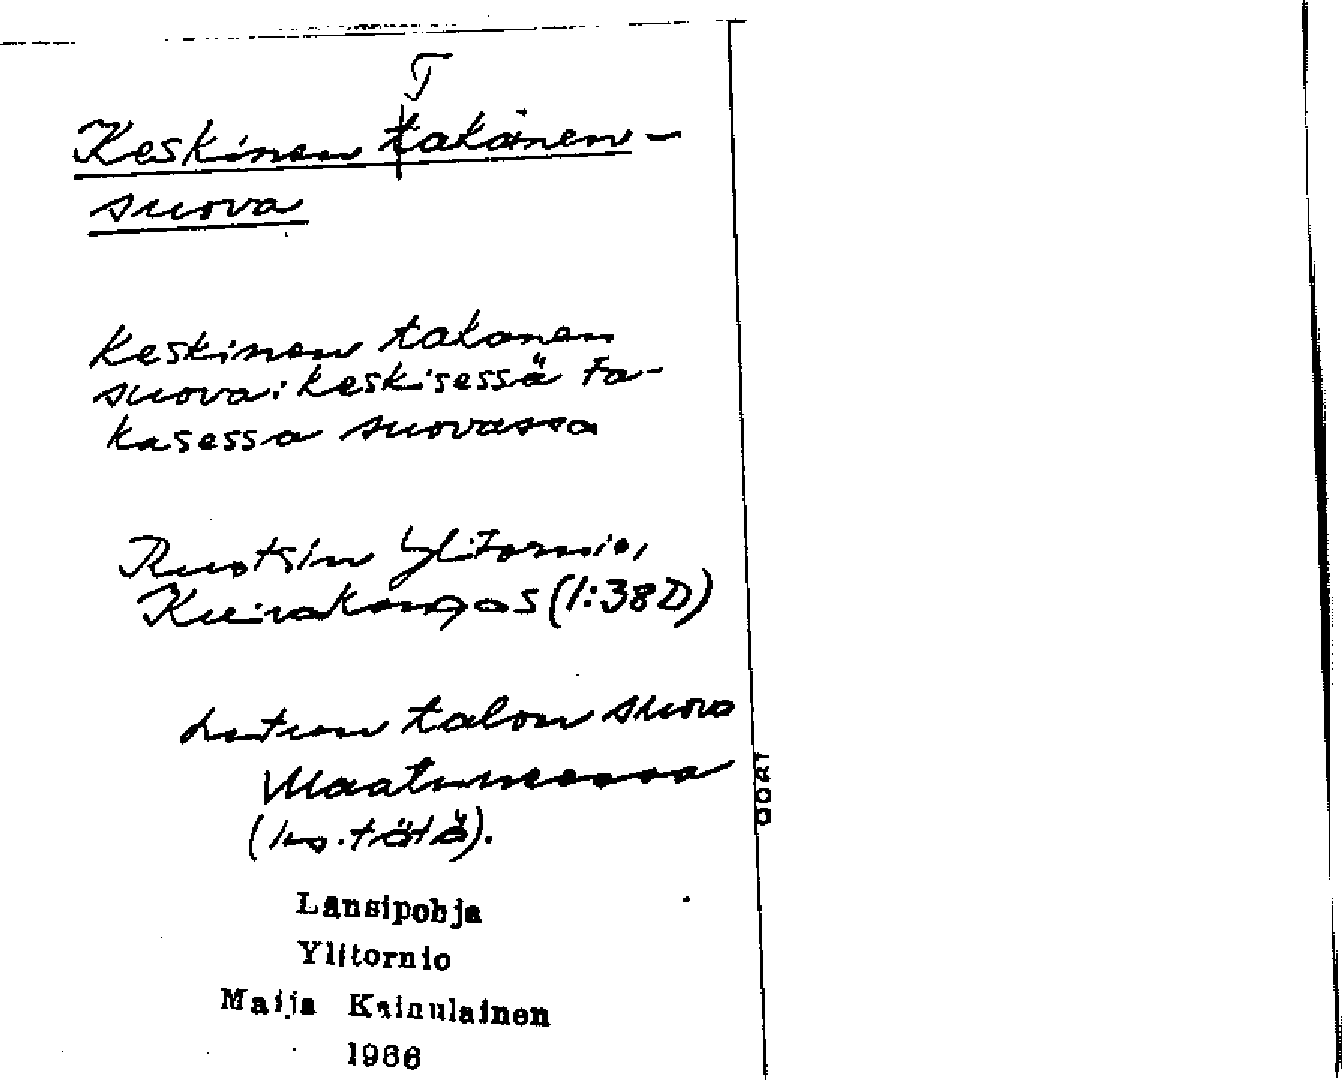 T
Keskinen takanen-
suova
keskinen takanen
suova: keskisessä ta-
kasessa suovassa
Ruotsin Ylitornio,
Kuivakangas (1:38D)
talon suova
(ks. tätä).
Länsipohja
Ylitornio
Maija Kainulainen
1966